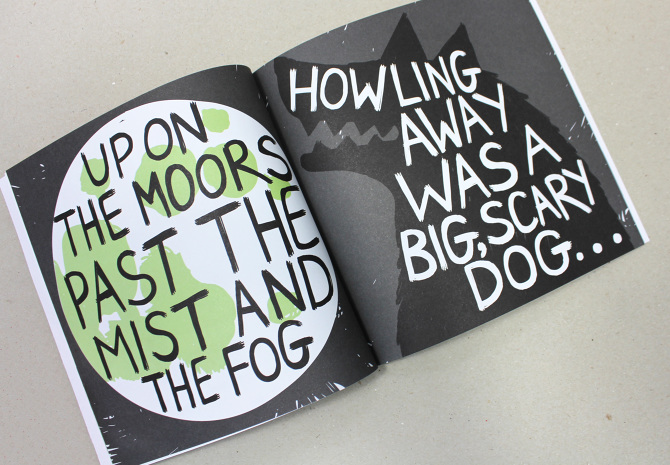 UP ON
THE MOORS
PAST THE
MIST AND
THE FOG
HOWLING
AWAY
WAS A
BIG, SCARY
DOG...